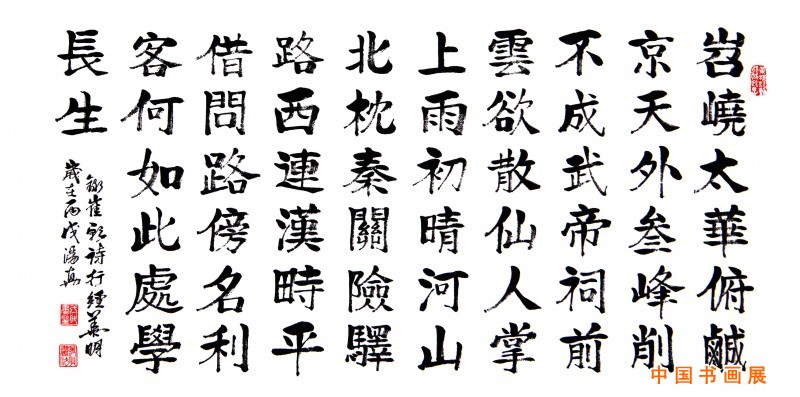 岧嶢太華俯鹹
京天外叄峰削
不成武帝祠前
雲欲散仙人掌
上雨初晴河山
北枕秦關險驛
路西連漢畤平
借問路傍名利
客何如此處學
長生
錄崔顥詩行經華明
歲在丙戌湯真
中国书画展